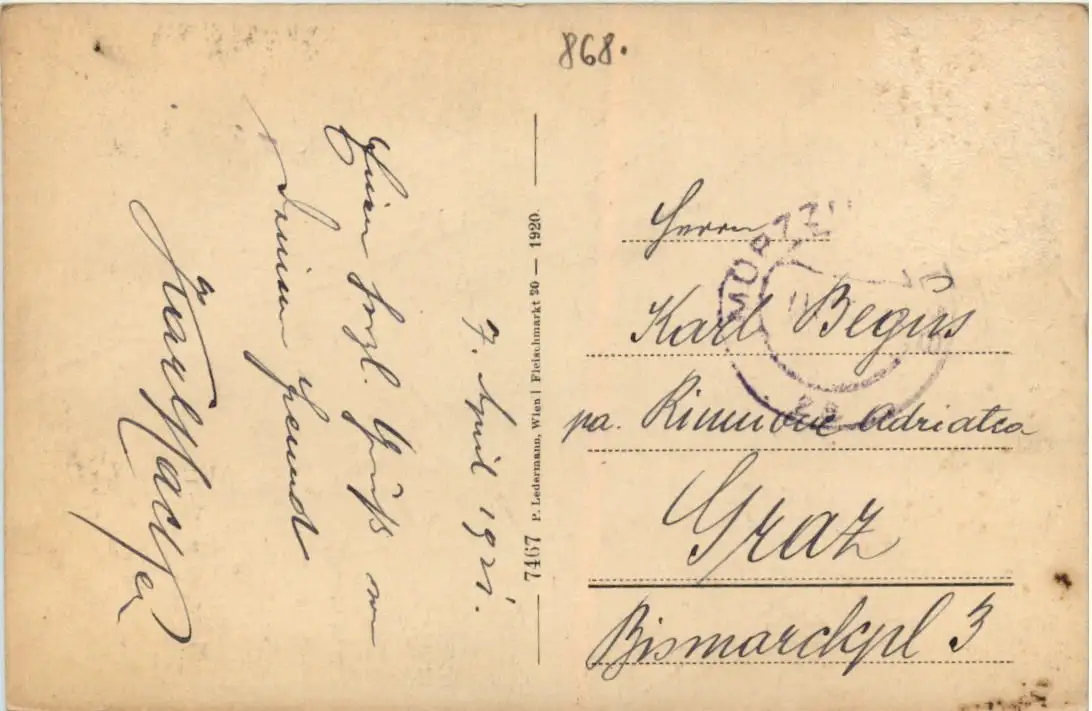 868.
7. April 1921.
Einen herzl. Gruß von
Deinem Freund
Karl
7467 P. Ledermann, Wien I Fleischmarkt 20 — 1920.
MÜRZZU
Herrn
Karl Begus
pa. Adriatica
Graz
Bismarckpl 3